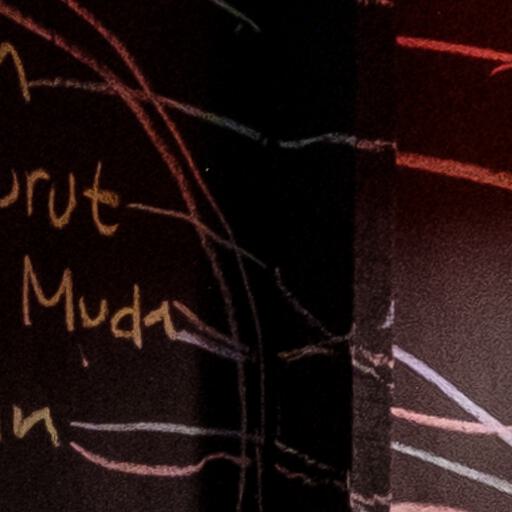 n
urut
Muda
an